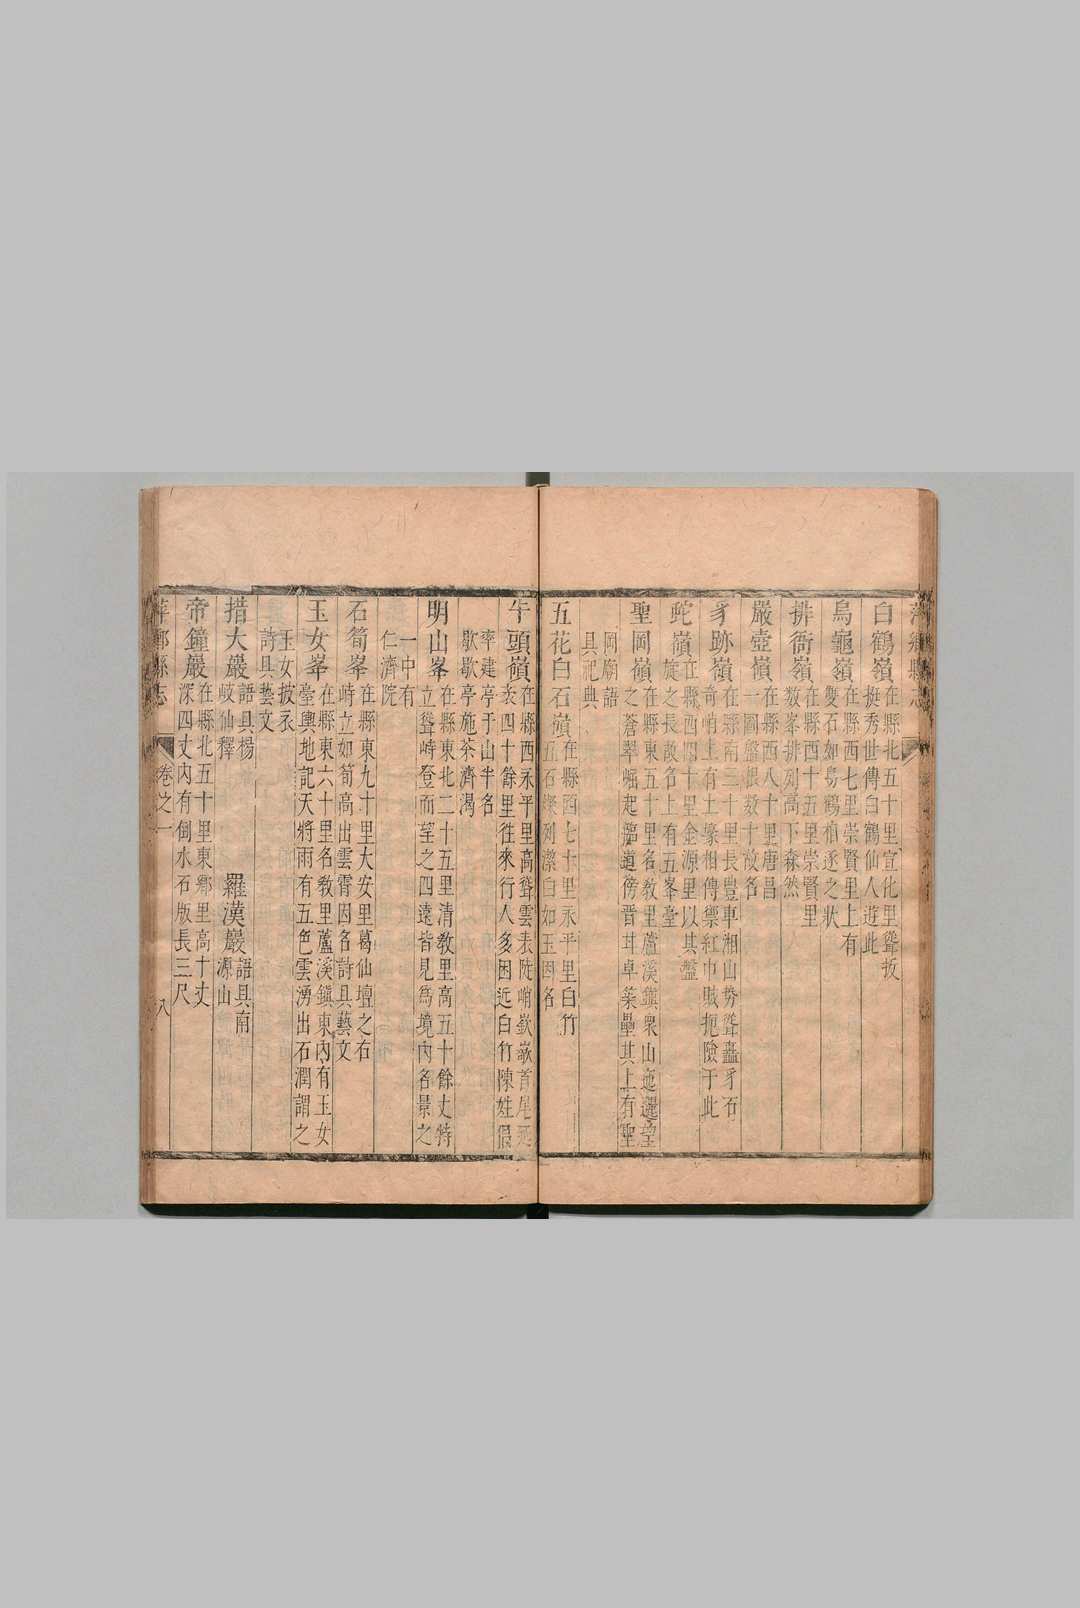 白鶴嶺 在縣北五十里宣化里聳㧞
挺秀世傳白鶴仙人遊此
烏龜嶺 在縣西七里崇賢里上有
雙石如龜鶴相逐之狀
排衙嶺 在縣西十五里崇賢里
數峯排列高下森然
嚴壺嶺 在縣西八十里唐昌
一圖盤根数十故名
豸跡嶺 在縣南三十里長豊車湘山勢聳矗豸石
奇峭上有土寨相傳禦紅巾賊扼險于此
蛇嶺 在縣西四十里金源里以其盤
旋之長故名上有五峯臺
聖岡嶺 在縣東五十里名敎里蘆溪鎮衆山迤邐望
之蒼翠崛起臨道傍晋甘卓築壘其上有聖
岡廟語
具祀典
五花白石嶺 在縣西七十里永平里白竹
五石燦列潔白如玉因名
牛頭嶺 在縣西永平里高聳雲表陡峭欹嶔首尾延
袤四十餘里徃來行人多困近白竹陳姓倡
率建亭于山半名
歇歇亭施茶濟渴
明山峯 在縣東北二十五里清敎里高五十餘丈特
立聳峙登而望之四遠皆見爲境内名景之
一中有
仁濟院
石筍峯 在縣東九十里大安里葛仙壇之右
峙立如筍高出雲霄因名詩具藝文
玉女峯 在縣東六十里名敎里蘆溪鎭東内有玉女
臺輿地記天將雨有五色雲湧出石澗謂之
玉女披衣
詩具藝文
措大巖 語具楊
岐仙釋
羅漢巖 語具南
源山
帝鐘巖 在縣北五十里東鄉里高十丈
深四丈内有倒水石版長三尺
萍鄉縣志 卷之一 八